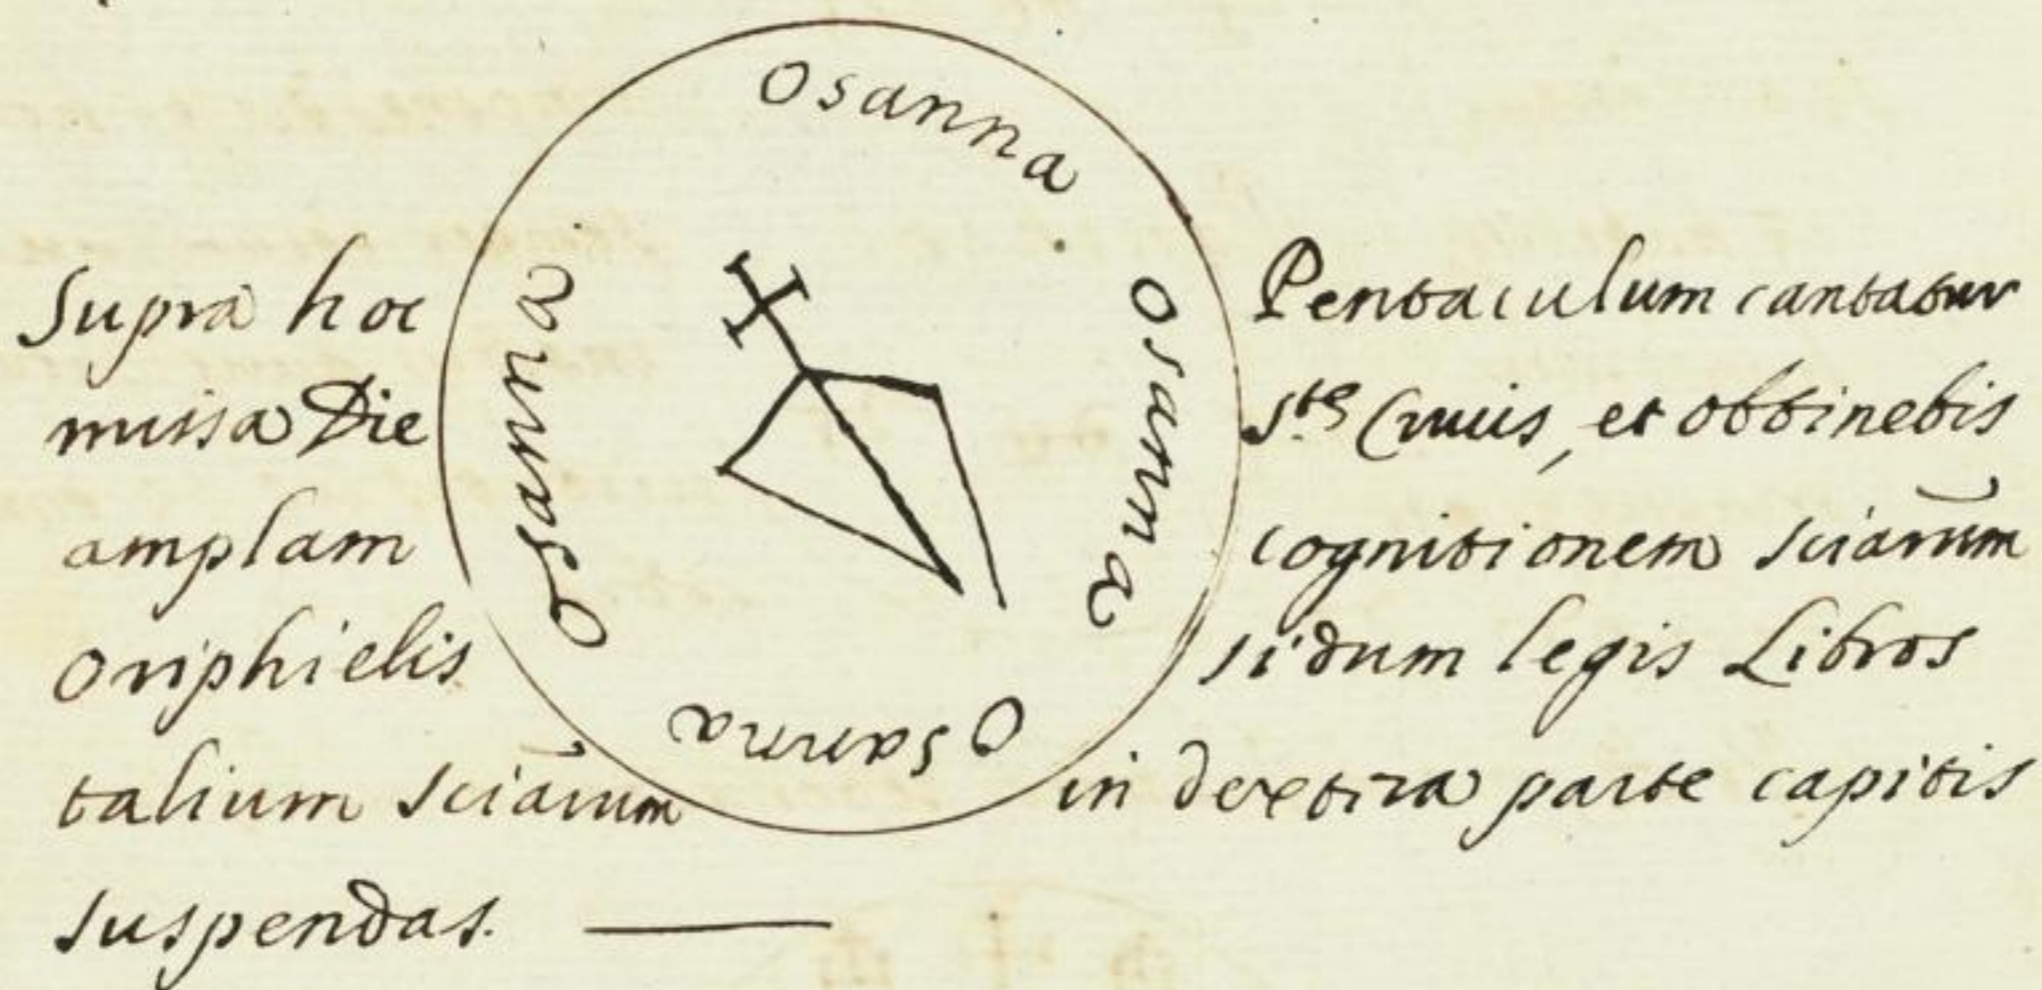 Osanna
Osanna
Osanna
Osanna
Supra hoc Pentaculum cantatur
missa Die S.te Crucis, et obtinebis
amplam cognitionem sciarum
Oriphielis si dum legis Libros
talium sciarum in dextra parte capitis
suspendas.